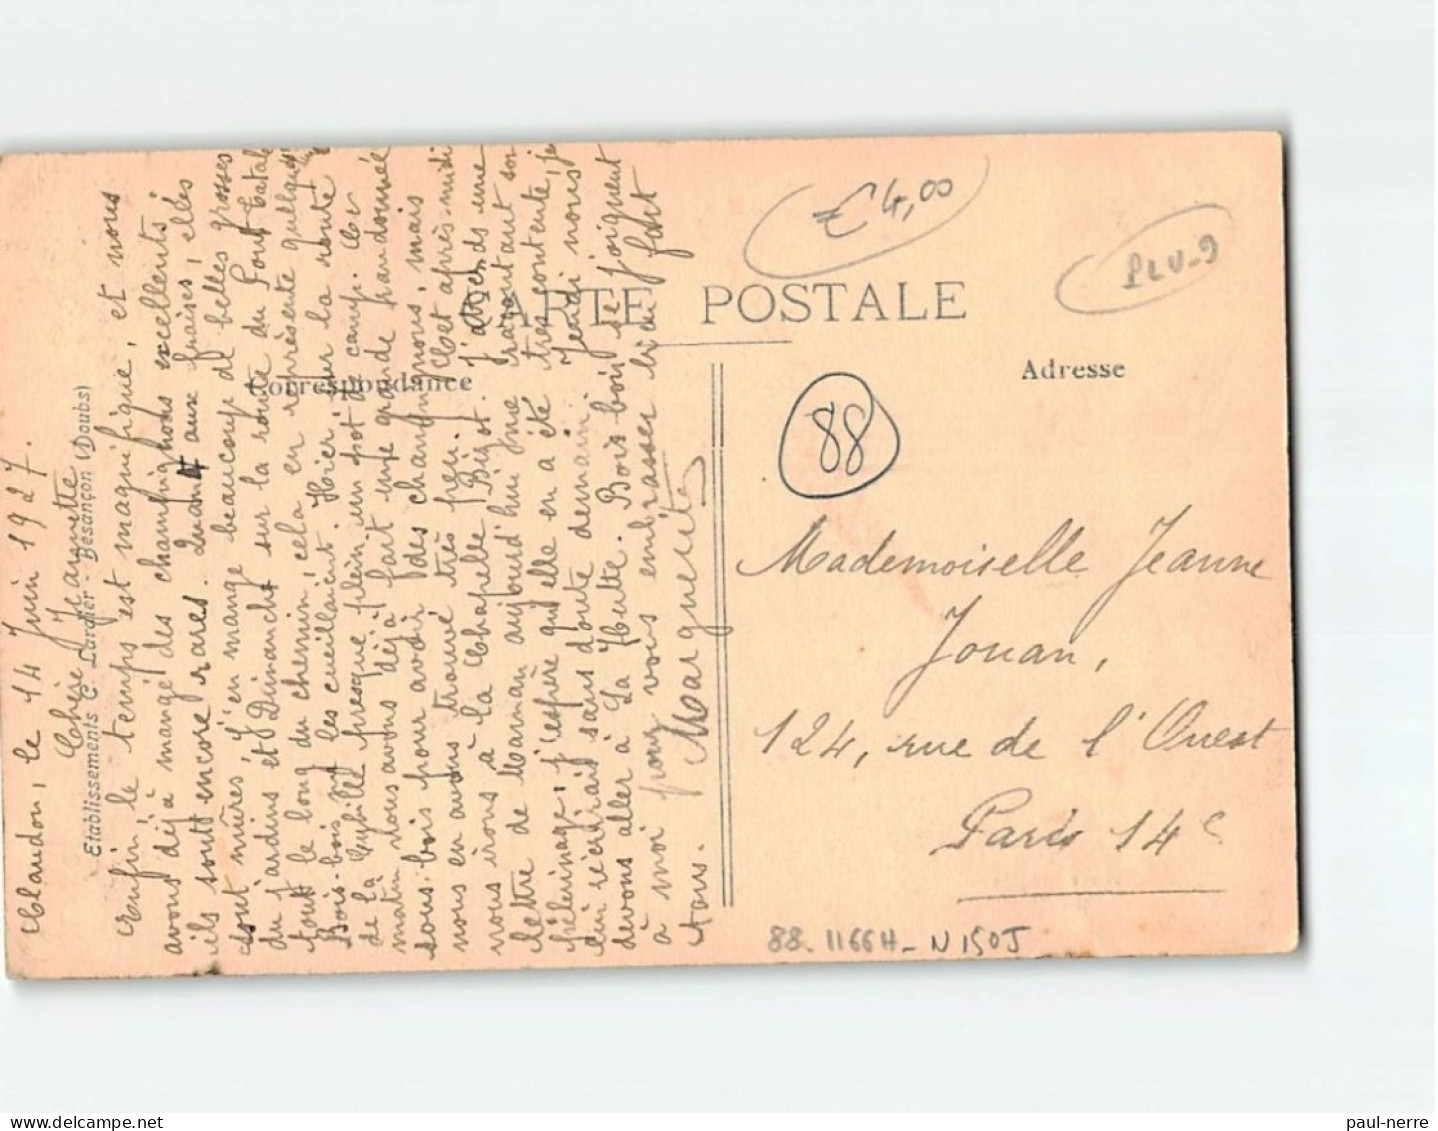 Claudon, le 14 Juin 1927.
Chère Jeannette
Enfin, le temps est magnifique, et nous
avons déjà mangé des champignons excellents;
ils sont encore rares. Quant aux fraises, elles
sont mûres; j'en mange beaucoup de belles grosses
du jardins et Dimanche sur la route du Pont Tatal
tout le long du chemin, cela en représente quelques
Bois-bois les cueillaient. Hier, sur la route
de la Sybille presque plein un pot de camp. Ce
matin nous avons déjà fait une grande randonnée
sous bois pour avoir des champignons, mais
nous en avons trouvé très peu. Cet après-midi
nous irons à la Chapelle Bigot. J'attends une
lettre de Maman aujourd'hui me racontant son
pélerinage; j'espère qu'elle en a été très contente, je
lui récrirai sans doute demain. Jeudi nous
devons aller à La Hutte. Bois-bois se joignent
à moi pour vous embrasser bien fort
tous.
Marguerite
Etablissements C. Lardier - Besançon (Doubs)
CARTE POSTALE
Correspondance
Adresse
€ 4,00
PLV-9
88
Mademoiselle Jeanne
Jouan,
124, rue de l'Ouest
Paris 14e
88. 1166H - N150J
paul-nerre